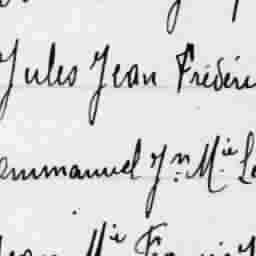 Jules Jean Frédéri
Emmanuel Jn. Mie Le
Jean Mie